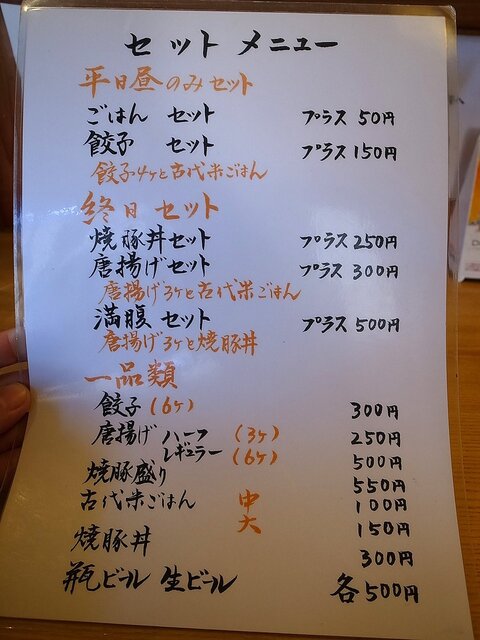 セット メニュー
平日昼のみセット
ごはん セット プラス 50円
餃子 セット プラス 150円
餃子4ヶと古代米ごはん
終日 セット
焼豚丼セット プラス 250円
唐揚げセット プラス 300円
唐揚げ3ヶと古代米ごはん
満腹 セット プラス 500円
唐揚げ3ヶと焼豚丼
一品類
餃子(6ヶ) 300円
唐揚げ ハーフ (3ヶ) 250円
レギュラー (6ヶ) 500円
焼豚盛り 550円
古代米ごはん 中 100円
大 150円
焼豚丼 300円
瓶ビール 生ビール 各500円